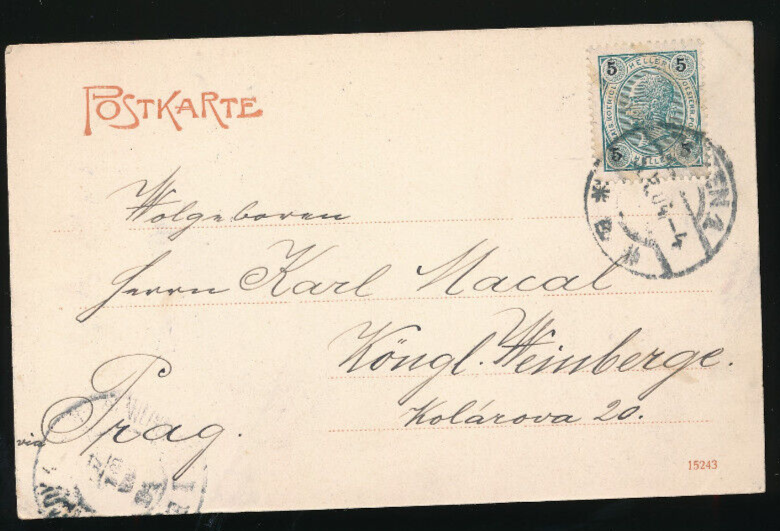 POSTKARTE
5 HELLER 5
5 HELLER 5
Wolgeboren
Herrn Karl Macal
Köngl. Weinberge.
Kolárova 20.
via Prag.
15243